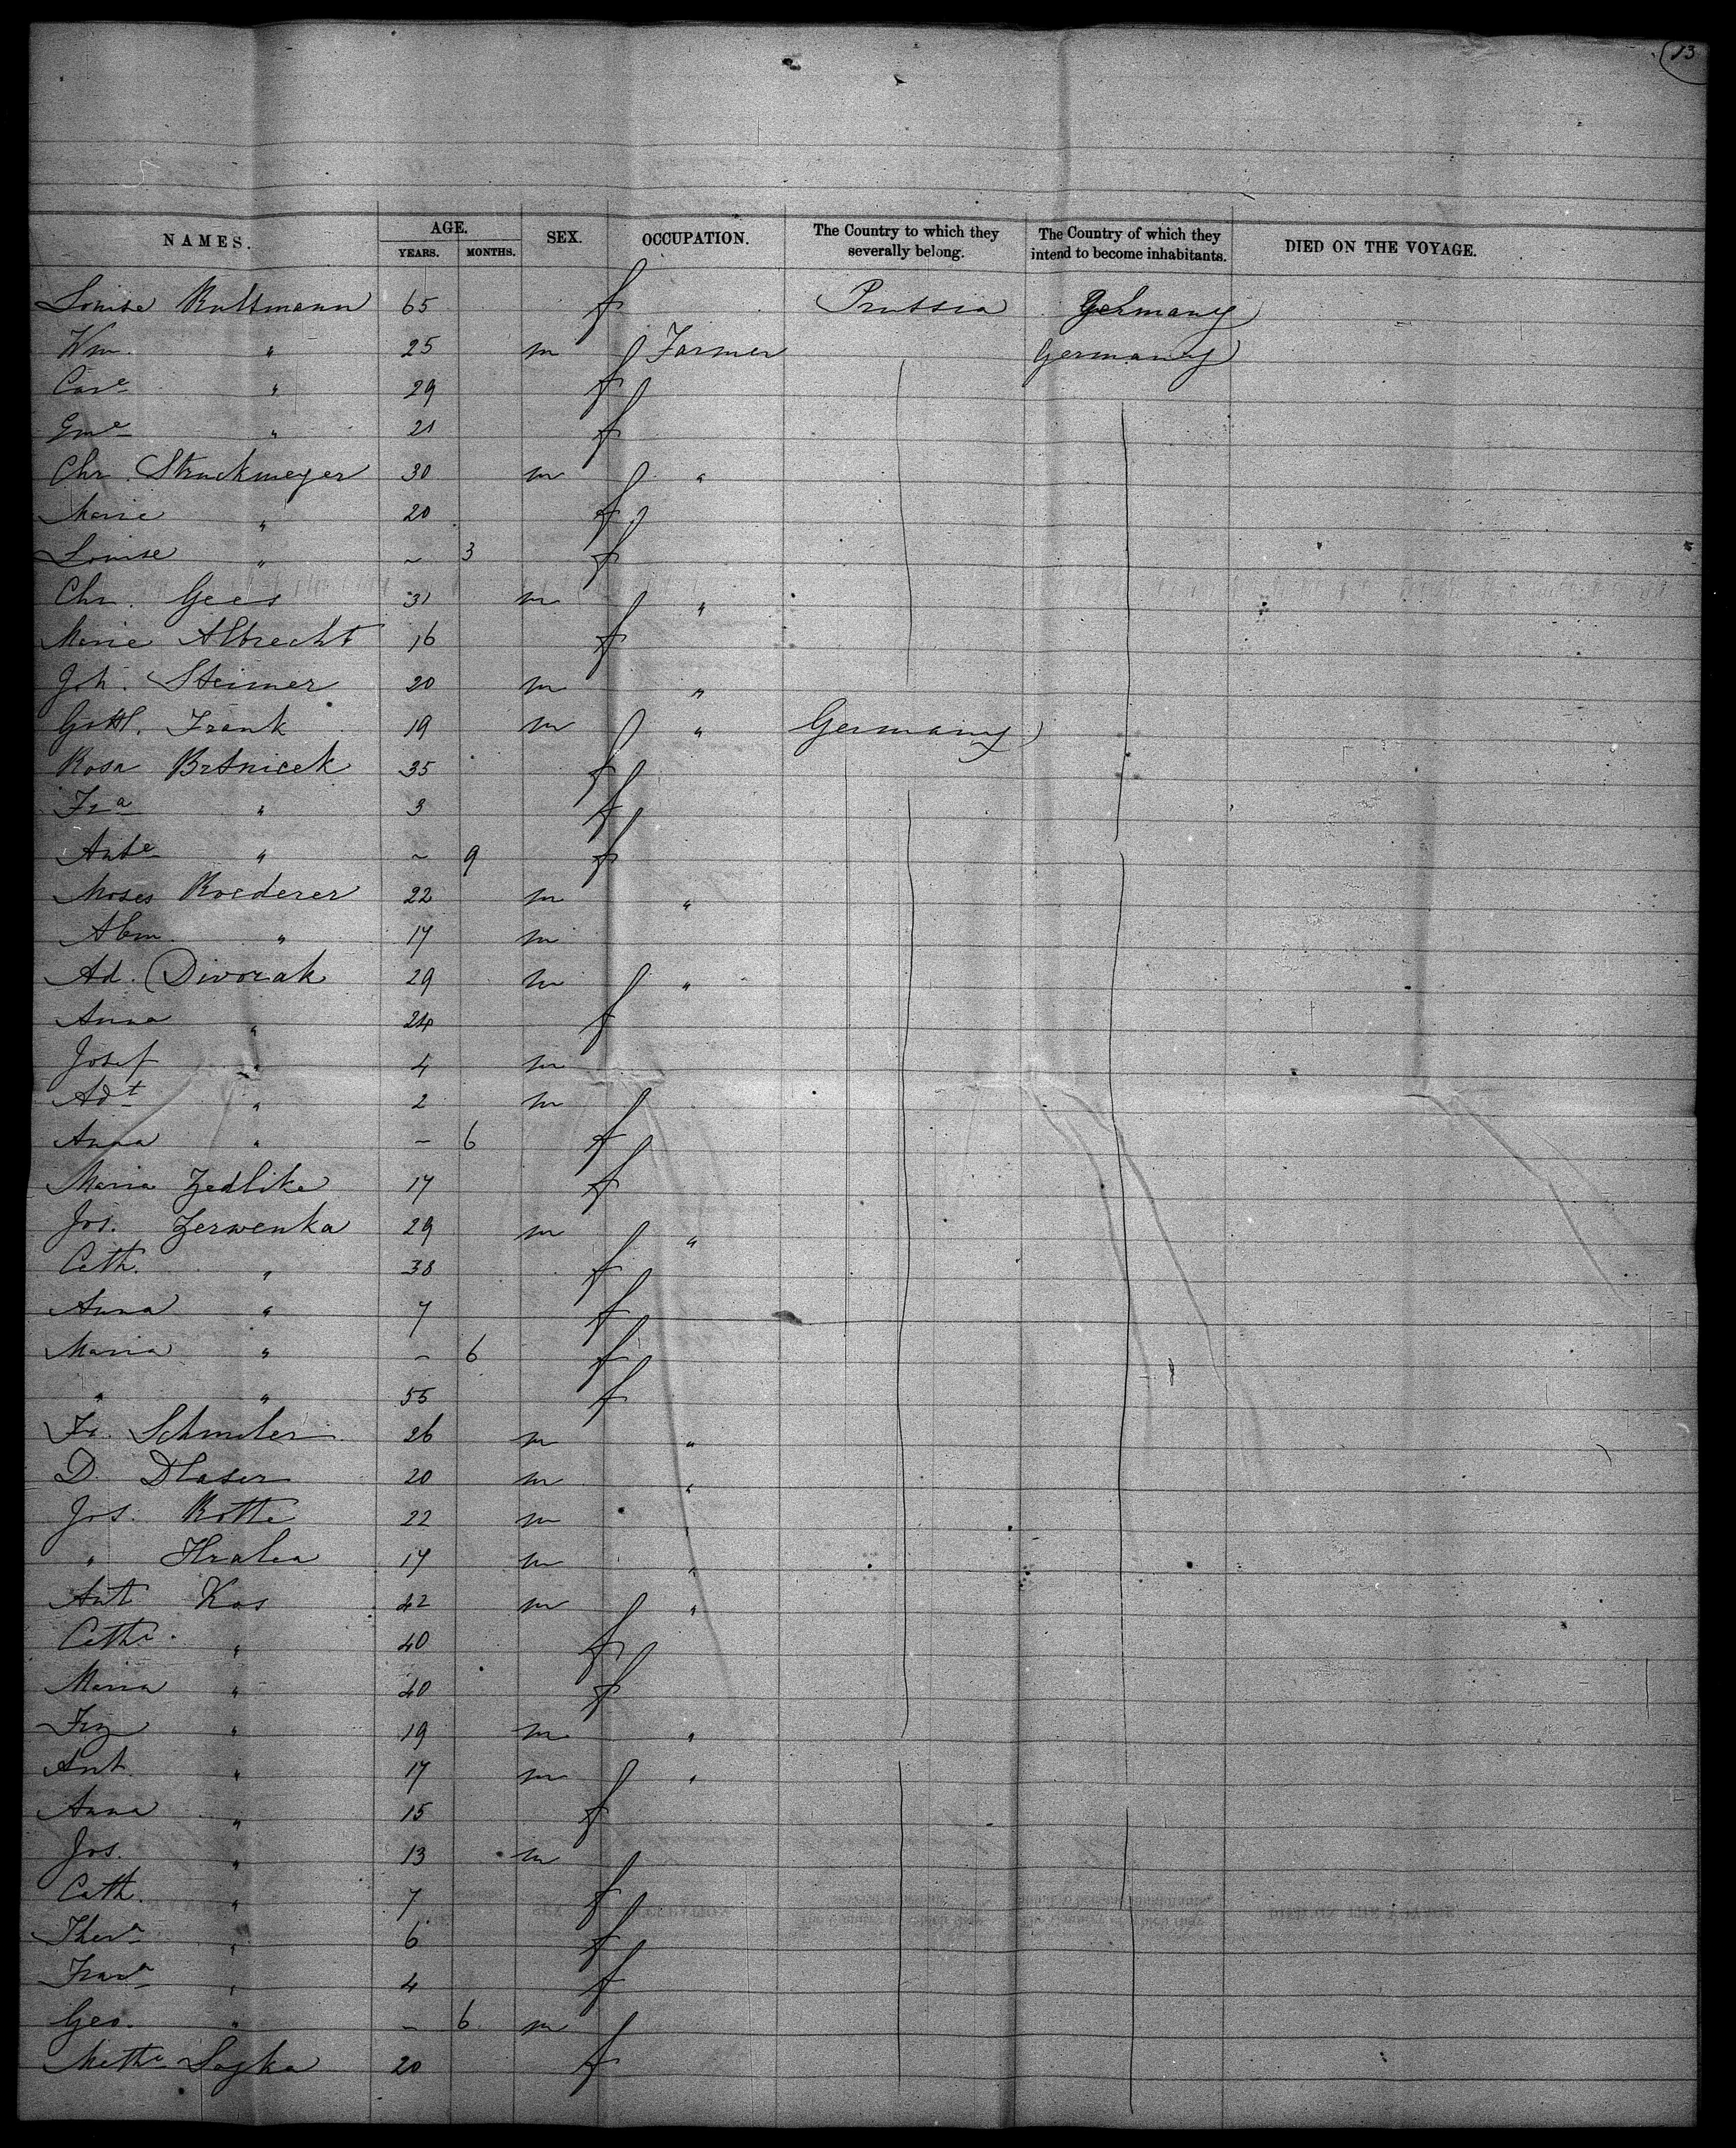 13
NAMES. AGE. YEARS. MONTHS. SEX. OCCUPATION. The Country to which they severally belong. The Country of which they intend to become inhabitants. DIED ON THE VOYAGE.
Louise 65 f Prussia Germany
Wm. " 25 m Farmer Germany
Care " 29 f
" 21 f
Chr. Struckmeyer 30 m "
Marie " 20 f
Louise " ~ 3 f
Chr. Gees 31 m "
Marie Albrecht 16 f
Joh. Steimer 20 m "
Gottl. Frank 19 m " Germany
Rosa Brtnicek 35 f
Fra " 3 f
Ante " ~ 9 f
Moses Roederer 22 m "
Abm. " 17 m
Ad. Divorak 29 m "
Anna " 24 f
Josef " 4 m
Adt " 2 m
Anna " – 6 f
Maria Zedlike 17 f
Jos. Zerwenka 29 m "
Cath. " 38 f
Anna " 7 f
Maria " – 6 f
" " 55 f
Fr. 26 m "
D. 20 m "
Jos. Rotte 22 m
" 17 m "
Ant Kos 42 m "
Cathe. " 40 f
Maria " 40 f
Frz " 19 m "
Ant. " 17 m "
Anna " 15 f
Jos. " 13 m
Cath. " 7 f
Thera " 6 f
" 4 f
Geo. " – 6 m
20 f